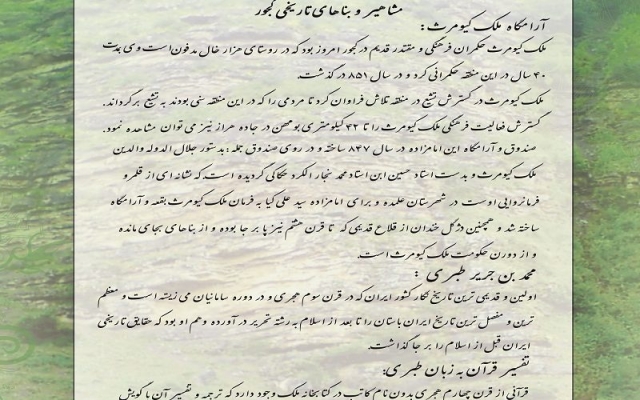 مشاهیر و بناهای تاریخی کجور
آرامگاه ملک کیومرث :
ملک کیومرث حکمران فرهنگی و مقتدر قدیم در کجور امروز بود که در روستای هزار خال مدفون است وی مدت
۴۰ سال در این منطقه حکمرانی کرد و در سال ۸۵۱ در گذشت.
ملک کیومرث در گسترش تشیع در منطقه تلاش فراوان کرد تا مردمی را که در این منطقه سنی بودند به تشیع برگرداند.
گسترش فعالیت فرهنگی ملک کیومرث را تا ۴۲ کیلومتری بومهن در جاده هراز نیز می توان مشاهده نمود.
صندوق و آرامگاه این امامزاده در سال ۸۴۷ ساخته و در روی صندوق جمله : بدستور جلال الدوله والدین
ملک کیومرث و بدست استاد حسین ابن استاد محمد نجار الکرد حکاکی گردیده است.که نشانه ای از قلمرو
فرمانروایی اوست در شهرستان علمده و برای امامزاده سید علی کیا به فرمان ملک کیومرث بقعه و آرامگاه
ساخته شد و همچنین دژکل خندان از قلاع قدیمی که تا قرن هشتم نیز پا بر جا بوده و از بناهای بجای مانده
و از دورن حکومت ملک کیومرث است.
محمد بن جریر طبری :
اولین و قدیمی ترین تاریخ نگار کشور ایران که در قرن سوم هجری و در دوره سامانیان می زیسته است و معظم
ترین و مفصل ترین تاریخ ایران باستان را تا بعد از اسلام به رشته تحریر در آورده و هم او بود که حقایق تاریخی
ایران قبل از اسلام را بر جا گذاشت.
تفسیر قرآن به زبان طبری:
قرآنی از قرن چهارم هجری بدون نام کاتب در کتابخانه ملک وجود دارد که ترجمه و تفسیر آن با گویش